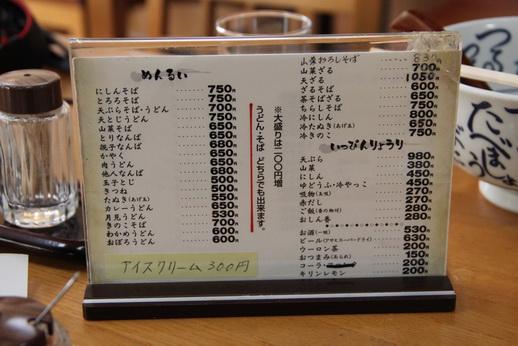 めんるい
にしんそば 750円
とろろそば 750円
天ぷらそば・うどん 700円
天とじうどん 750円
山菜そば 650円
とりなんば 650円
親子なんば 680円
かやく 650円
肉うどん 680円
他人なんば 680円
玉子とじ 550円
きつね 500円
たぬき(あげ玉) 500円
カレーうどん 550円
月見うどん 530円
きのこそば 700円
わかめうどん 600円
おぼろうどん 600円
アイスクリーム 300円
※大盛りは二〇〇円増
うどん・そば どちらでも出来ます。
山菜おろしそば 830円
山菜ざる 700円
天ざる 1050円
ざるそば 600円
茶そばざる 650円
ちらしそば 750円
冷にしん 800円
冷たぬき(あげ玉) 650円
冷きのこ 750円
いっぴんりょうり
天ぷら 980円
山菜 380円
にしん 450円
ゆどうふ・冷やっこ 450円
吸物 270円
赤だし 270円
ご飯(香の物付) 280円
おしん香 280円
お酒(一級) 530円
ビール(アサヒスーパードライ) 630円
ウーロン茶 200円
おつまみ(あられ) 150円
コーラ 200円
キリンレモン 200円